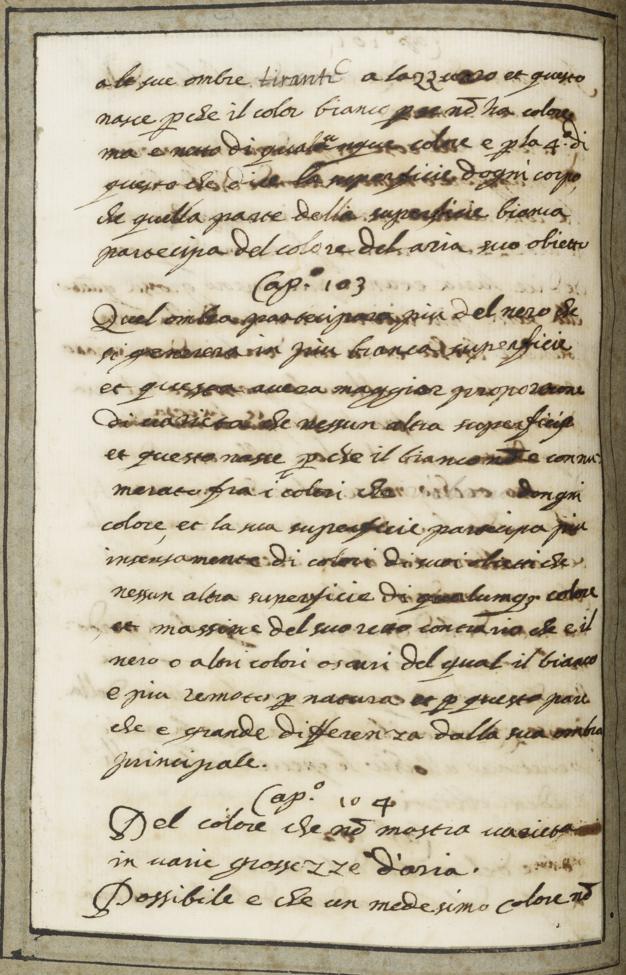 a le sue ombre tiranti a lazzurro et questo
nasce p che il color bianco nō ha colore
ma e netto di qualunque colore e p la 4.ª di
questo che dice la superficie dogni corpo
che quella parte della superficie bianca
partecipa del colore del aria suo obietto
Cap.º 103
Quel ombra partecipara piu del nero che
si generera in piu bianca superficie
et questa avera maggior proporcione
di varieta che nessun altra superficie
et questo nasce p che il bianco nō e connu-
merato fra i colori che dongni
colore, et la sua superficie partecipa piu
intensamente di colori di suoi obietti che
nessun altra superficie di qualumq3 colore
et massime del suo retto contrario che e il
nero o altri colori oscuri del qual il bianco
e piu remoto p natura et p questo pare
che e grande differenza dalla sua ombra
principale.
Cap.º 104
Del colore che nō mostra varieta
in varie grossezze d'aria.
Possibile e che un medesimo colore nō